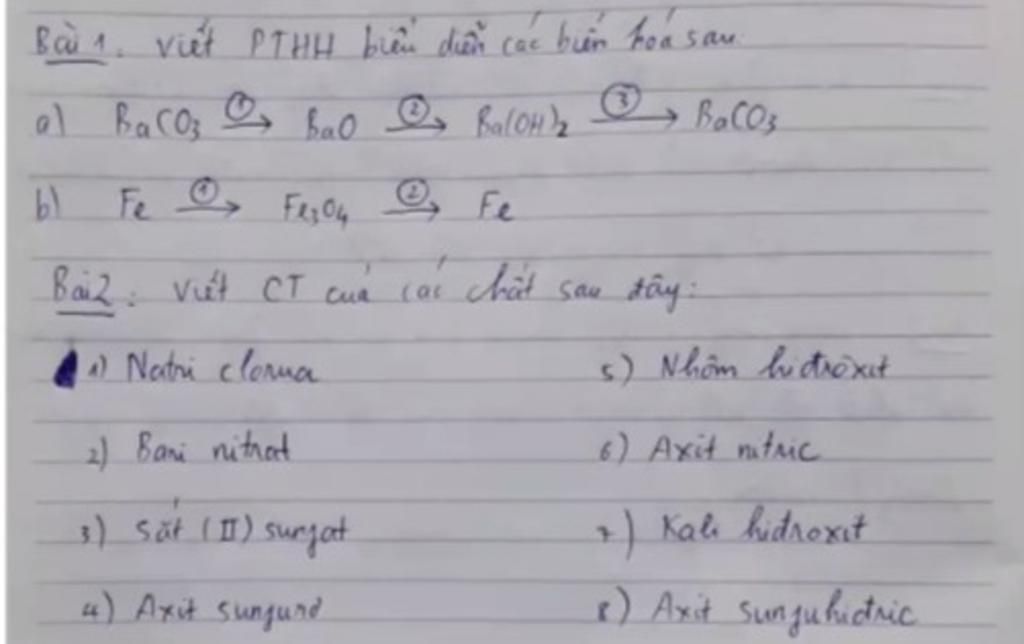 Bài 1: Viết PTHH biểu diễn các biến hoá sau.
a) BaCO3 ①→ BaO ②→ Ba(OH)2 ③→ BaCO3
b) Fe ①→ Fe3O4 ②→ Fe
Bài 2: Viết CT của các chất sau đây:
1) Natri clorua 5) Nhôm hiđrôxit
2) Bari nitrat 6) Axit nitric
3) Sắt (II) sunfat 7) Kali hiđroxit
4) Axit sunfurơ 8) Axit sunfuhiđric